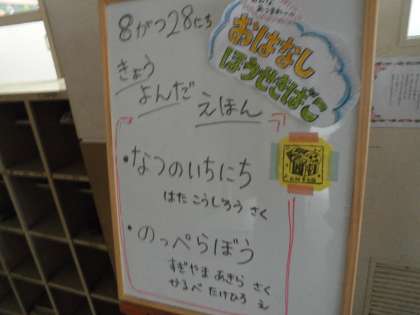 8がつ28にち
おはなし
ほうせきばこ
きょう
よんだ
えほん
・なつのいちにち
はた こうしろう さく
・のっぺらぼう
すぎやま あきら さく
かるべ たけひろ え